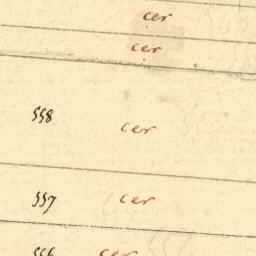 cer
cer
558
cer
557 cer
556 cer